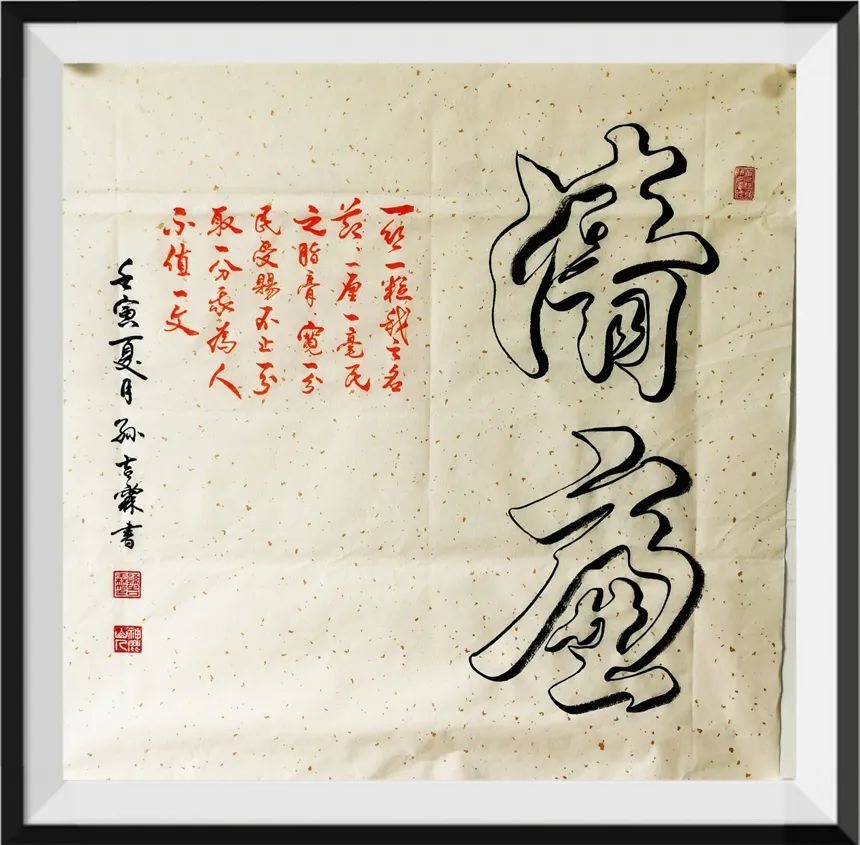 清廉
一絲一粒我之名
節、一厘一毫民
之脂膏、寬一分
民受賜不止一分
取一分我為人
不值一文
壬寅夏月 孫吉霖書